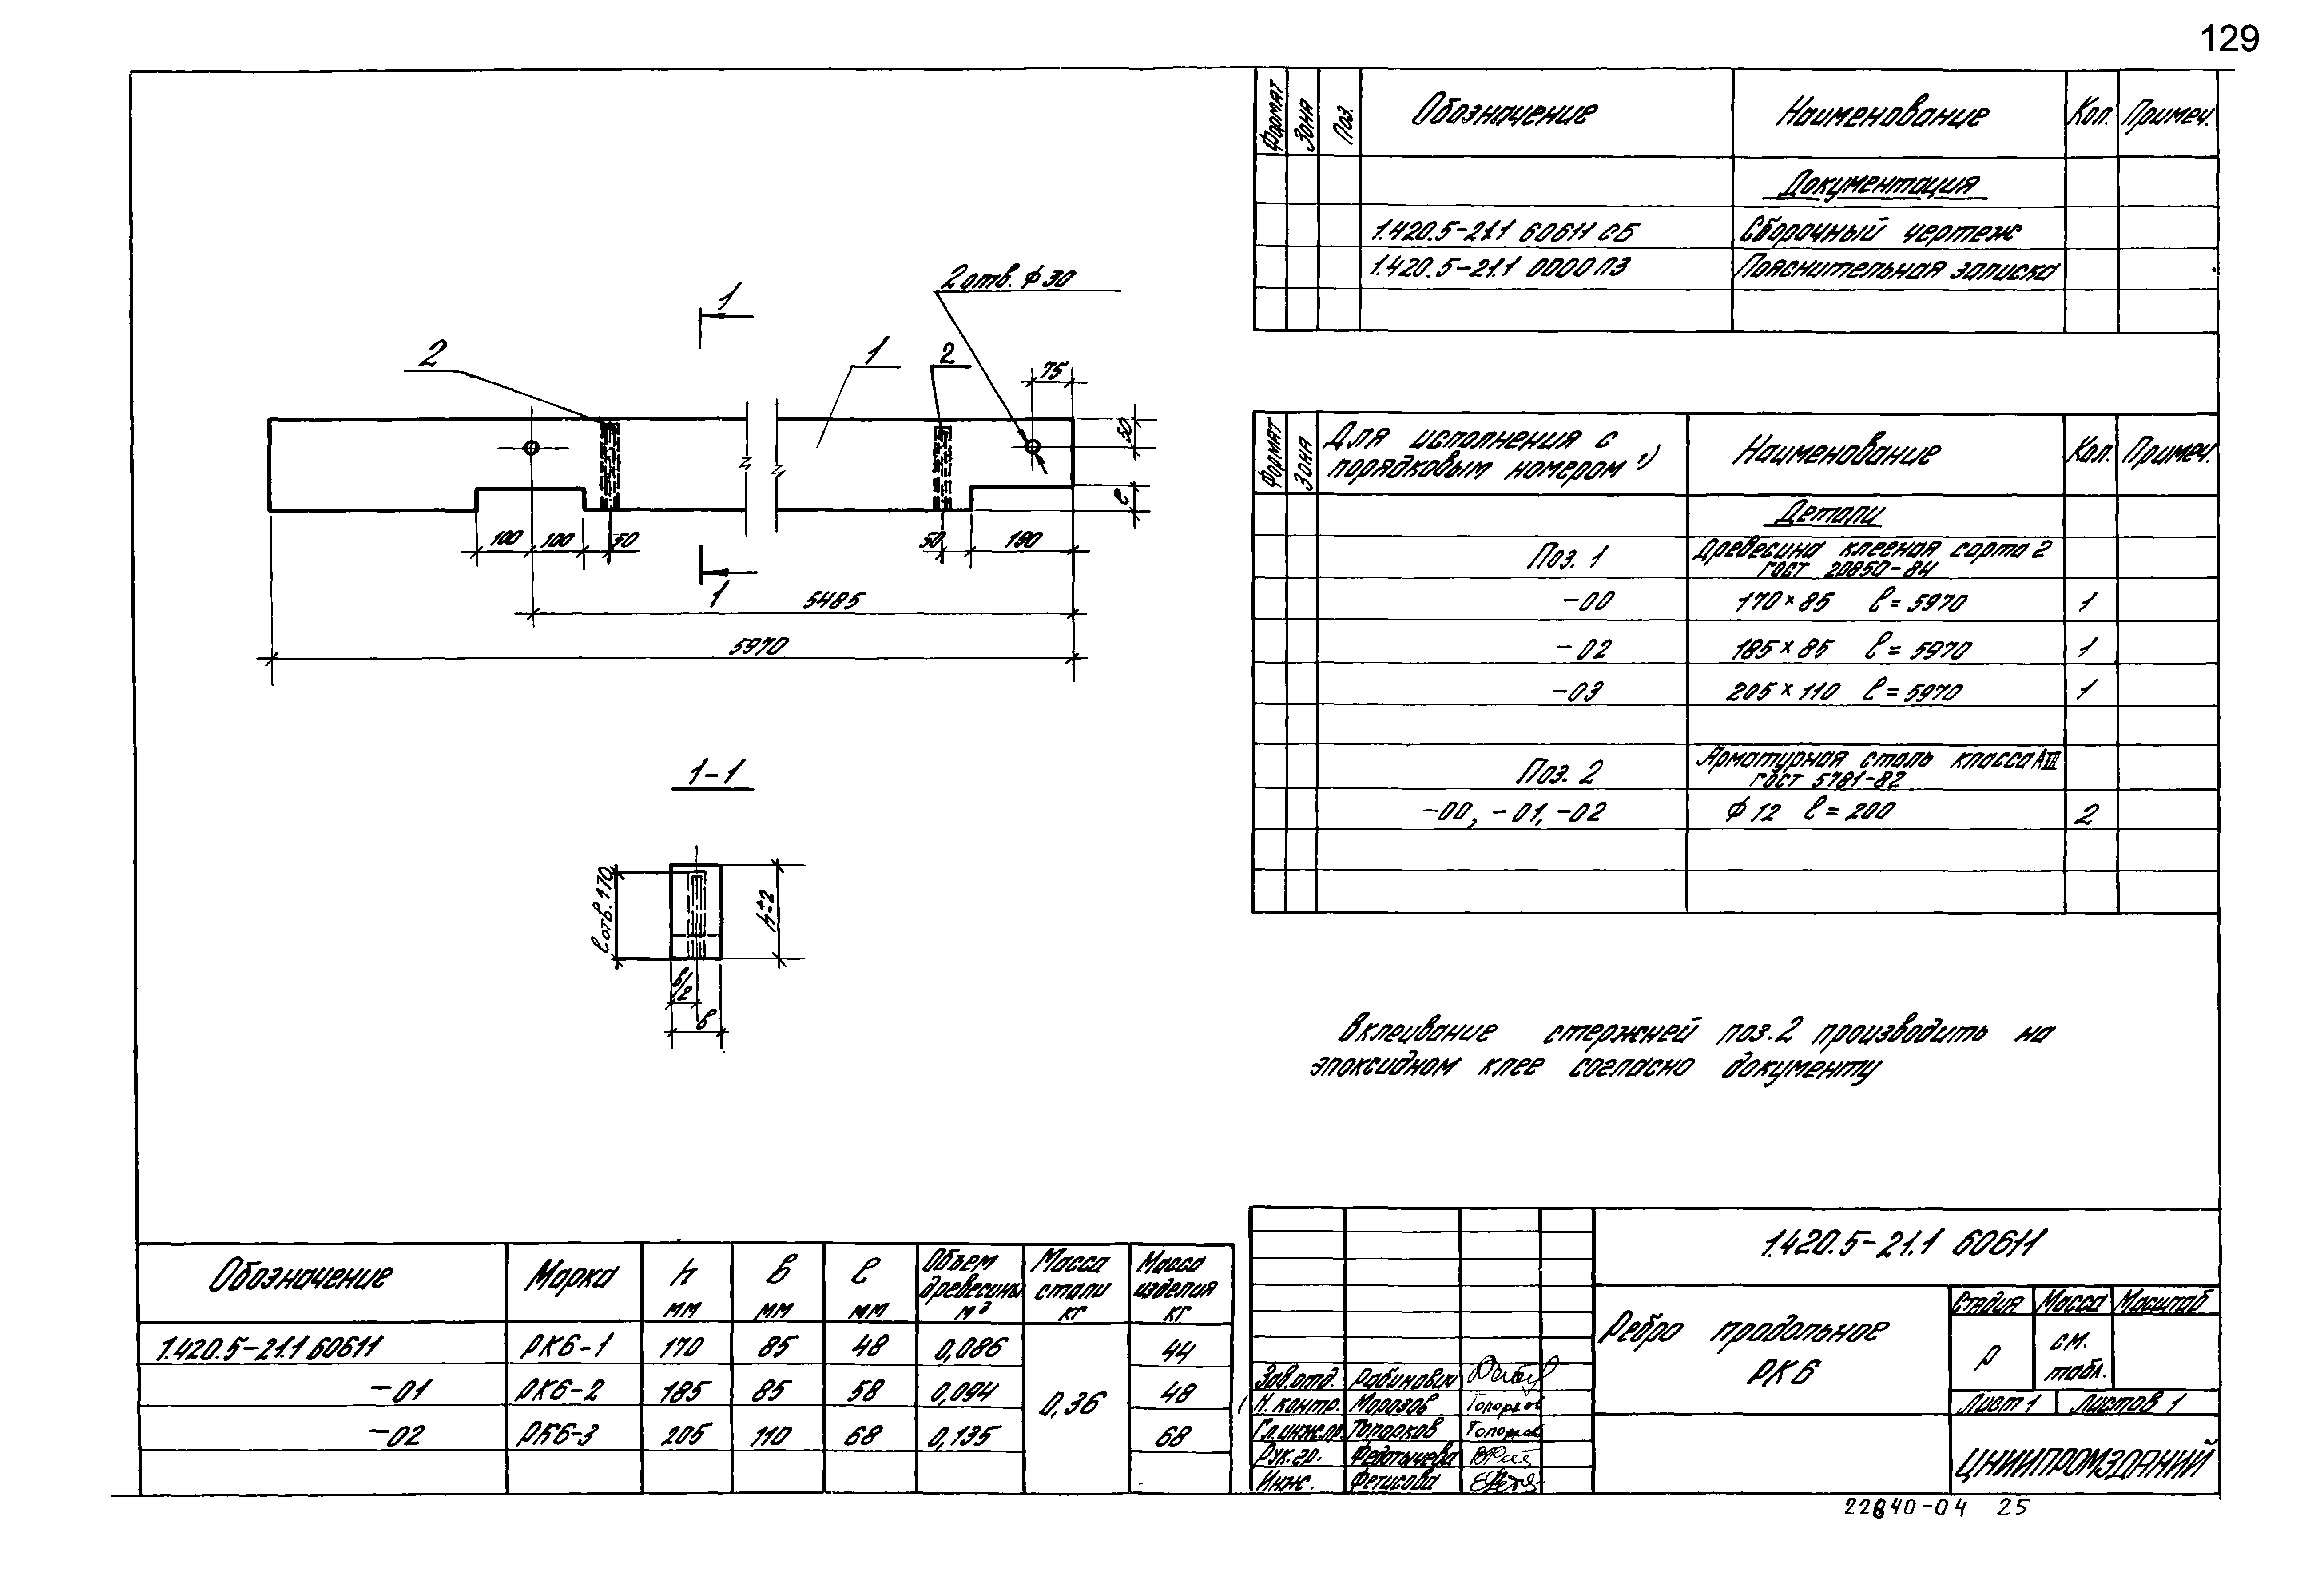 129
Формат Зона Поз. Обозначение Наименование Кол. Примеч.
Документация
1.420.5-21.1 60611 СБ Сборочный чертеж
1.420.5-21.1 0000 ПЗ Пояснительная записка
2 отв. ϕ 30
1
2 1 2
75
50
ℓ
100 100 50 50 190
1
5485
5970
1-1
ℓ отв. 170
h±2
в/2
в
Формат Зона Для исполнения с Наименование Кол. Примеч.
порядковым номером ¹)
Детали
Поз. 1 Древесина клееная сорта 2
ГОСТ 20850-84
-00 170×85 ℓ=5970 1
-02 185×85 ℓ=5970 1
-03 205×110 ℓ=5970 1
Поз. 2 Арматурная сталь класса АIII
ГОСТ 5781-82
-00, -01, -02 ϕ 12 ℓ=200 2
Вклеивание стержней поз. 2 производить на
эпоксидном клее согласно документу
Обозначение Марка h мм в мм ℓ мм Объем древесины м³ Масса стали кг Масса изделия кг
1.420.5-21.1 60611 РК6-1 170 85 48 0,086 44
-01 РК6-2 185 85 58 0,094 0,36 48
-02 РК6-3 205 110 68 0,135 68
1.420.5-21.1 60611
Ребро продольное
РК 6
Стадия Масса Масштаб
Р см. табл.
Лист 1 Листов 1
ЦНИИПРОМЗДАНИЙ
Зав.отд. Рабинович
Н. контр. Морозов
Гл.инж.пр. Топорков
Рук.гр. Федотычева
Инж. Фетисова
22840-04 25